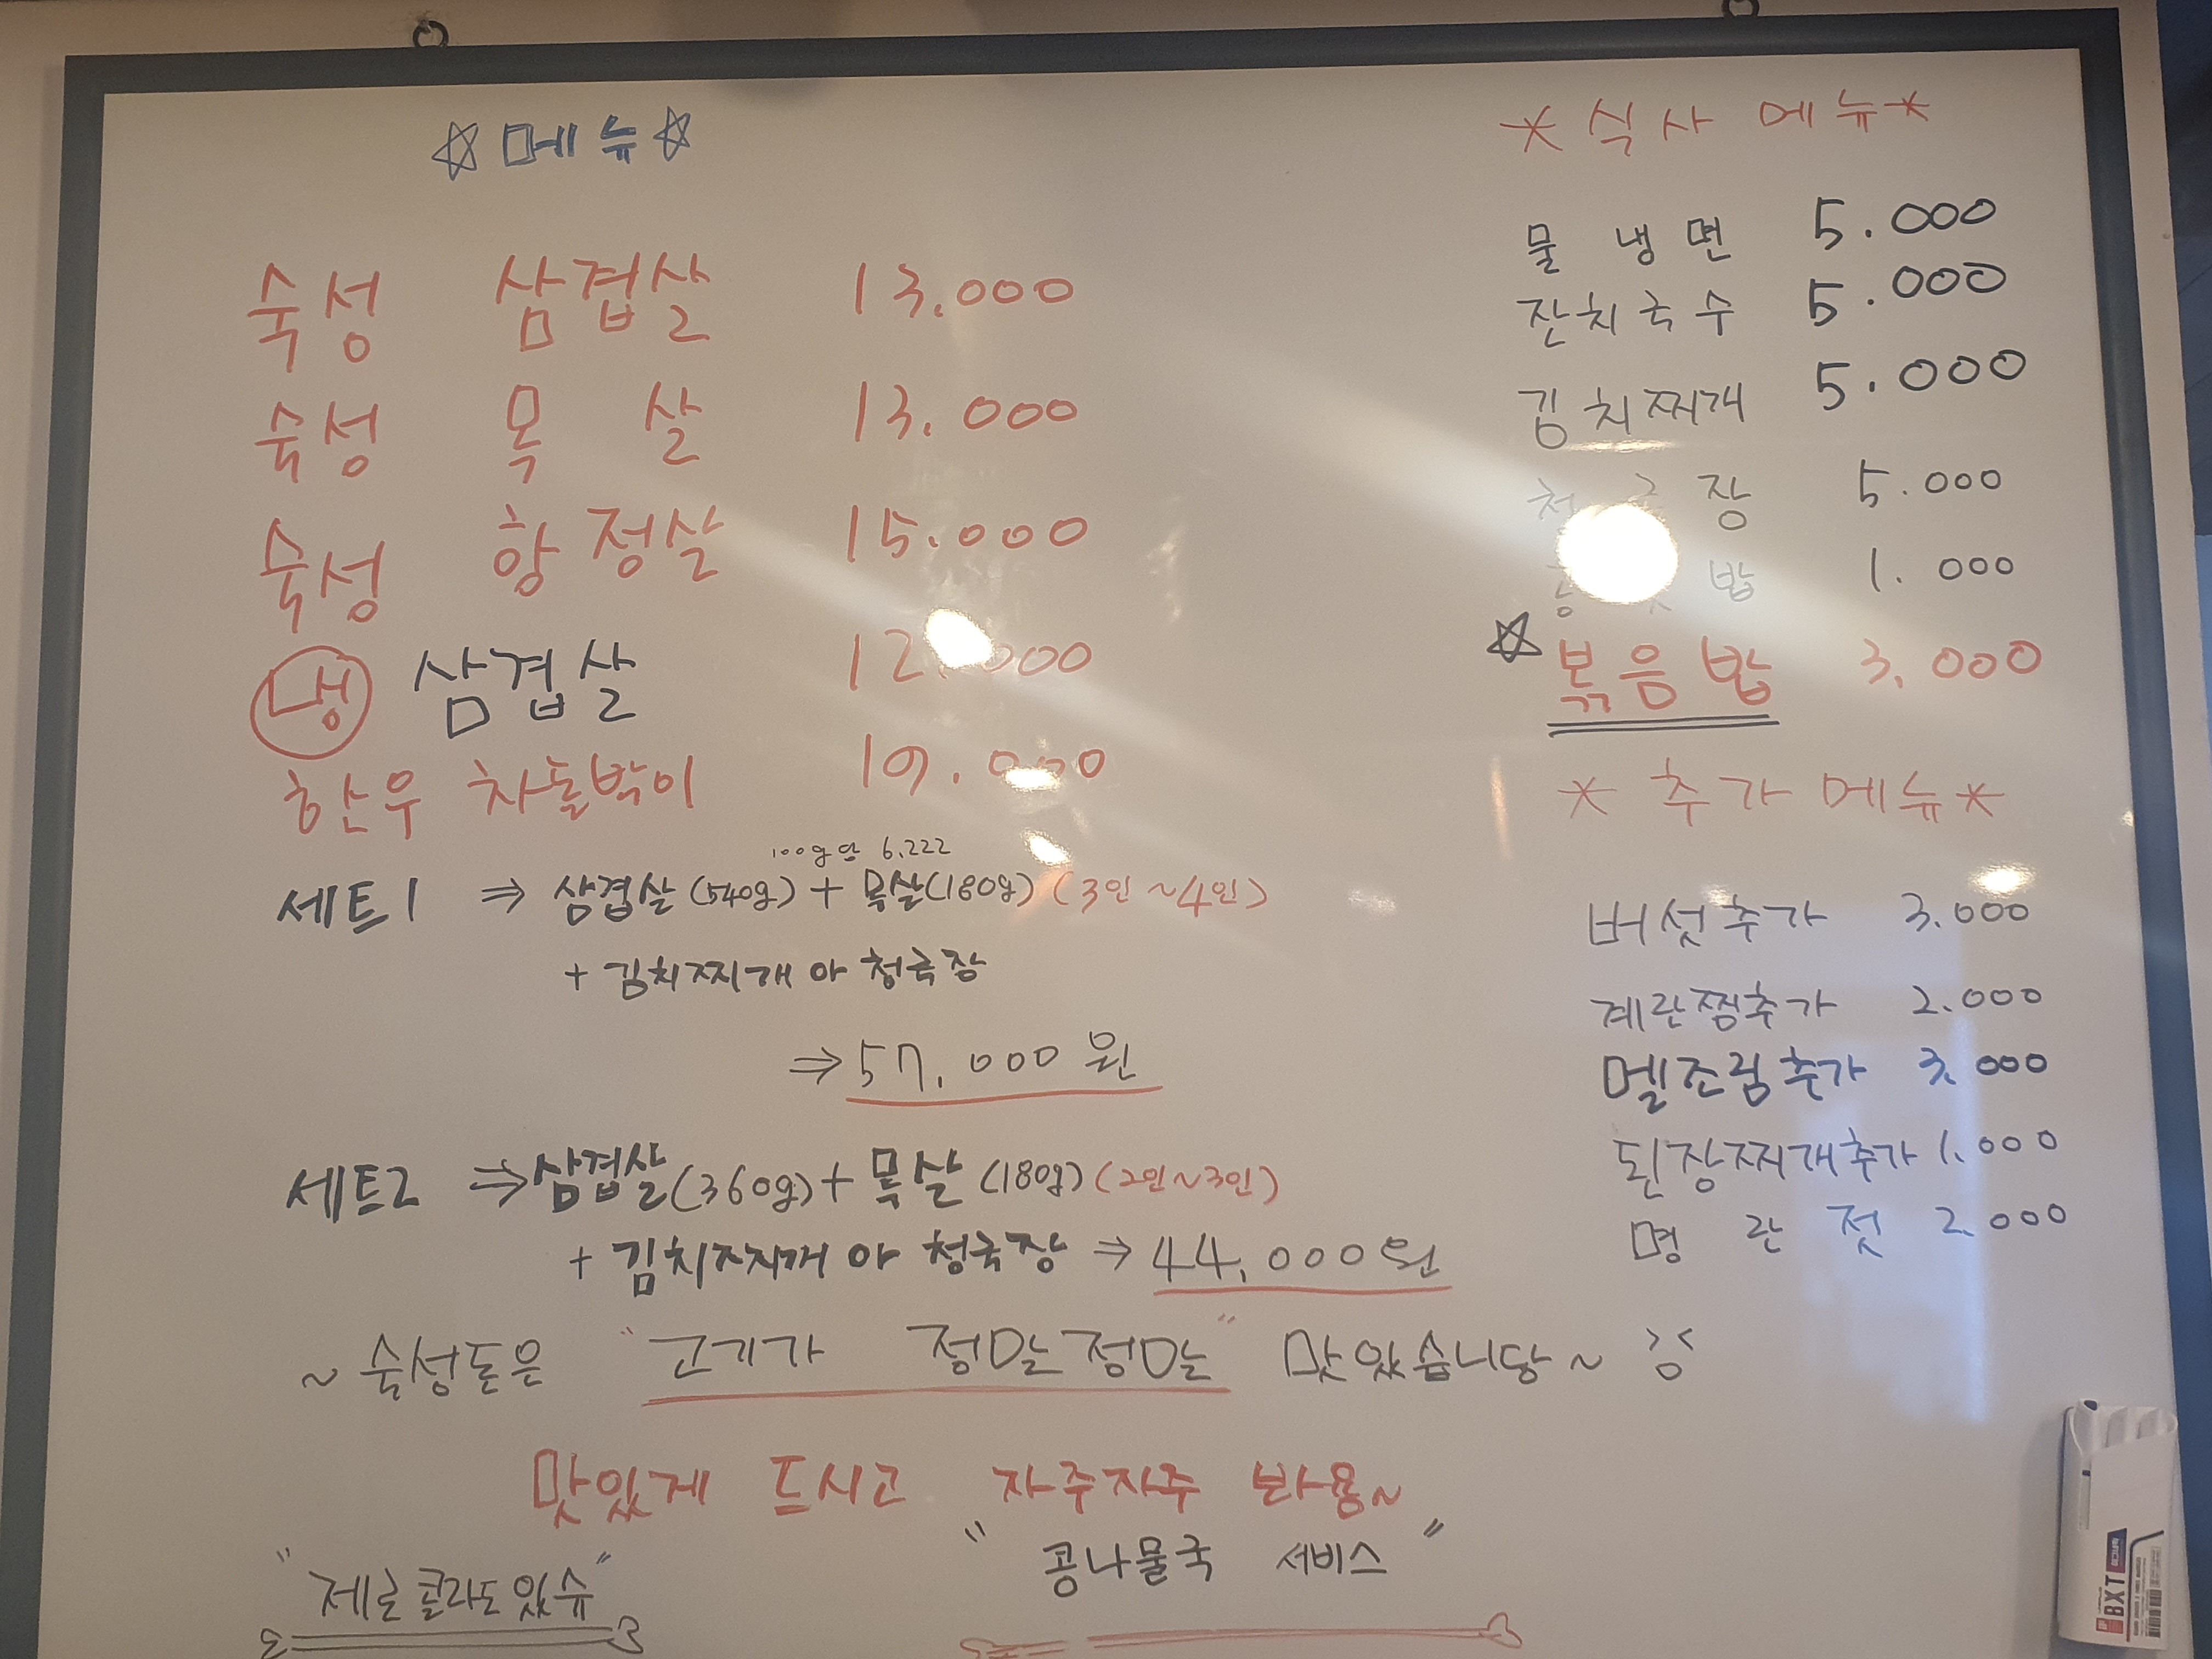 ☆메뉴☆
숙성 삼겹살 13.000
숙성 목 살 13.000
숙성 항정살 15.000
냉 삼겹살 12.000
한우 차돌박이 19.000
100g당 6.222
세트1 ⇒ 삼겹살(540g) + 목살(180g) (3인~4인)
+ 김치찌개 아 청국장
⇒ 57,000원
세트2 ⇒ 삼겹살(360g) + 목살(180g) (2인~3인)
+ 김치찌개 아 청국장 ⇒ 44,000원
~ 숙성돈은 "고기가 정말정말" 맛있습니당~ ><
맛있게 드시고 자주자주 봐용~
"콩나물국 서비스"
"제로콜라도있슈"
*식사 메뉴*
물 냉 면 5.000
잔치국수 5.000
김치찌개 5.000
청국장 5.000
밥 1.000
☆볶음밥 3,000
*추가메뉴*
버섯추가 3.000
계란찜추가 2.000
멜조림추가 3.000
된장찌개추가 1.000
명 란 젓 2.000
BXT